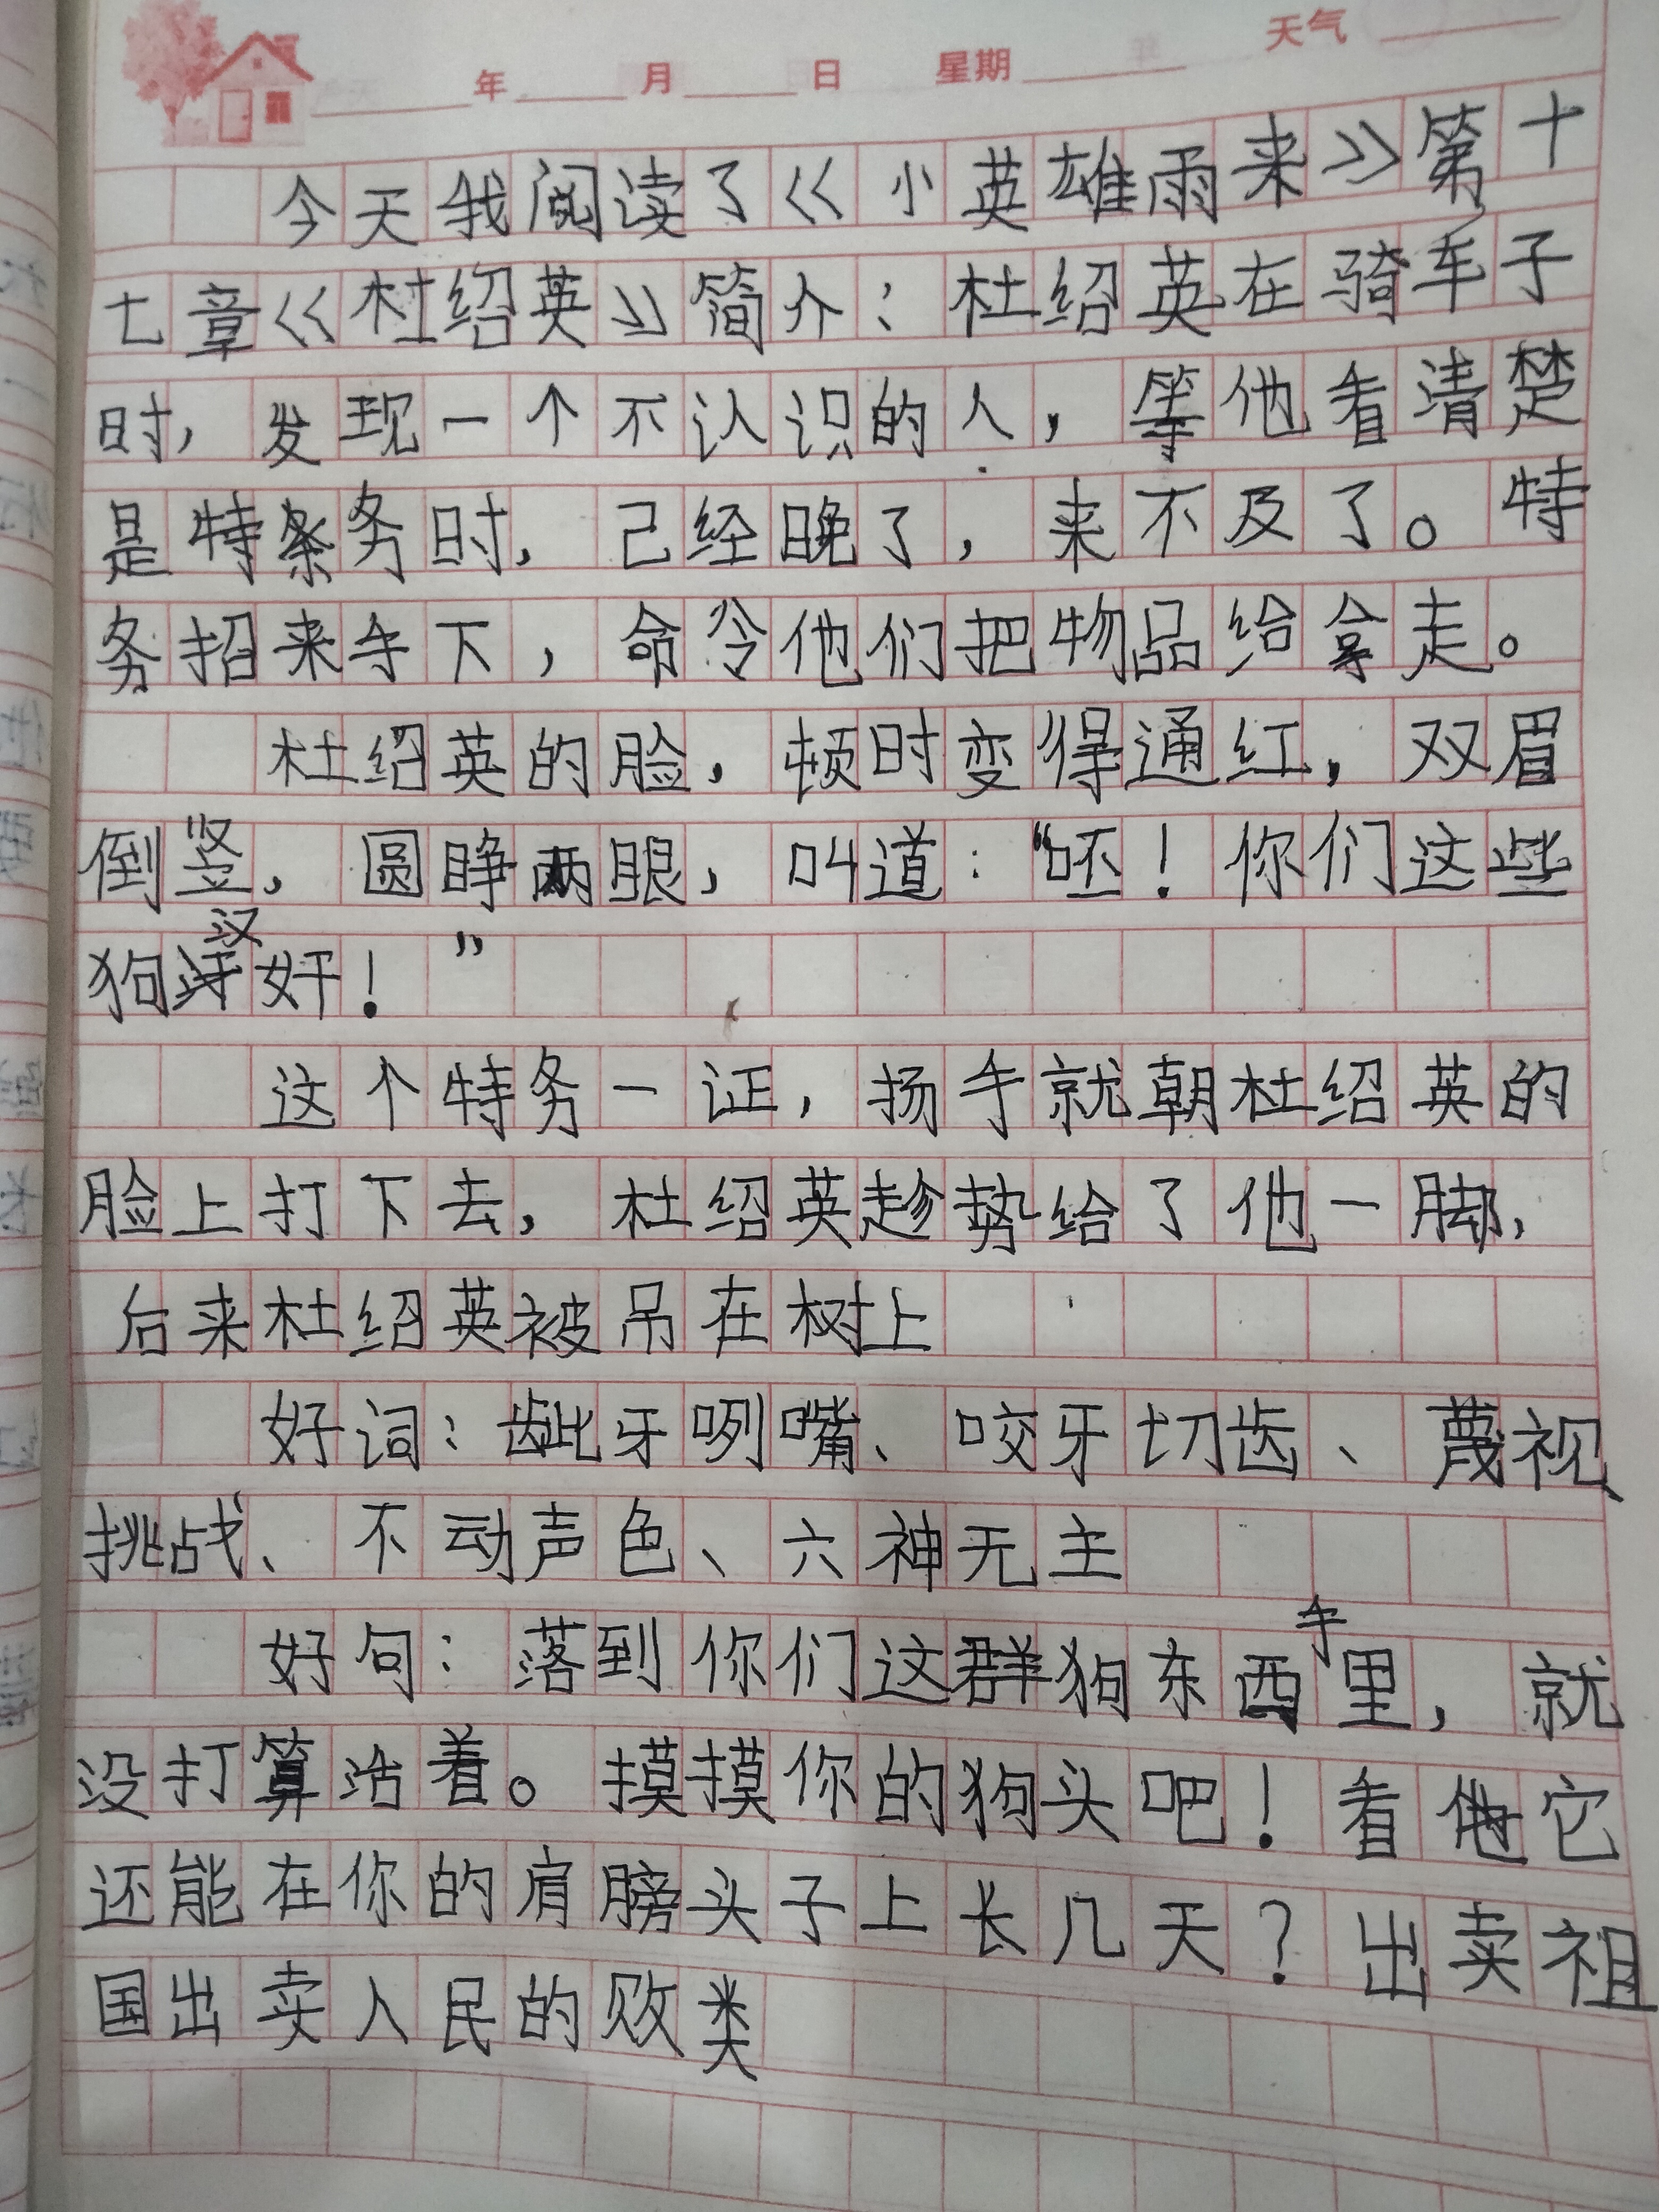 年 月 日 星期 天气
今天我阅读了《小英雄雨来》第十
七章《杜绍英》简介：杜绍英在骑车子
时，发现一个不认识的人，等他看清楚
是特务时，己经晚了，来不及了。特
务招来手下，命令他们把物品给拿走。
杜绍英的脸，顿时变得通红，双眉
倒竖，圆睁两眼，叫道：“呸！你们这些
狗汉奸！”
这个特务一证，扬手就朝杜绍英的
脸上打下去，杜绍英趁势给了他一脚，
后来杜绍英被吊在树上
好词：龇牙咧嘴、咬牙切齿、蔑视
挑战、不动声色、六神无主
好句：落到你们这群狗东西手里，就
没打算活着。摸摸你的狗头吧！看它
还能在你的肩膀头子上长几天？出卖祖
国出卖人民的败类